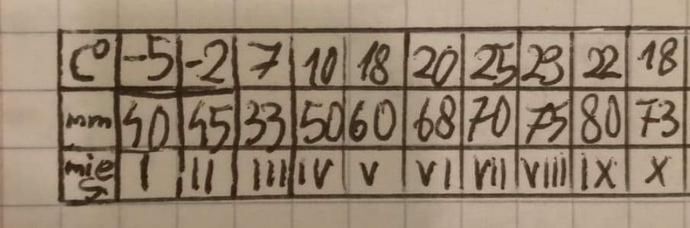 C° -5 -2 7 10 18 20 25 23 22 18
mm 40 45 33 50 60 68 70 75 80 73
mie I II III IV V VI VII VIII IX X